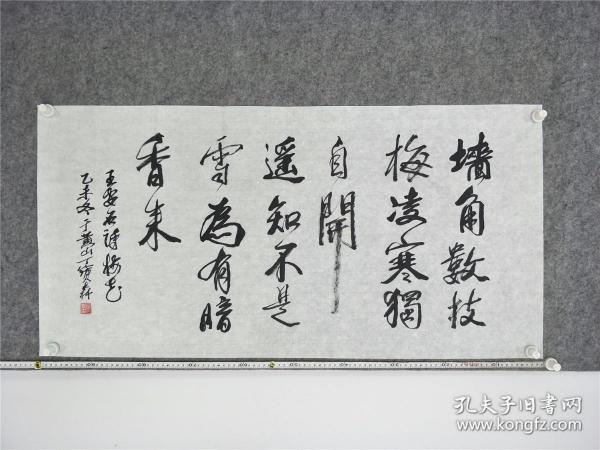 墻角數枝
梅凌寒獨
自開
遥知不是
雪為有暗
香来
王安石詩梅花
乙未冬于黄山丁寶森
孔夫子旧书网
www.kongfz.com